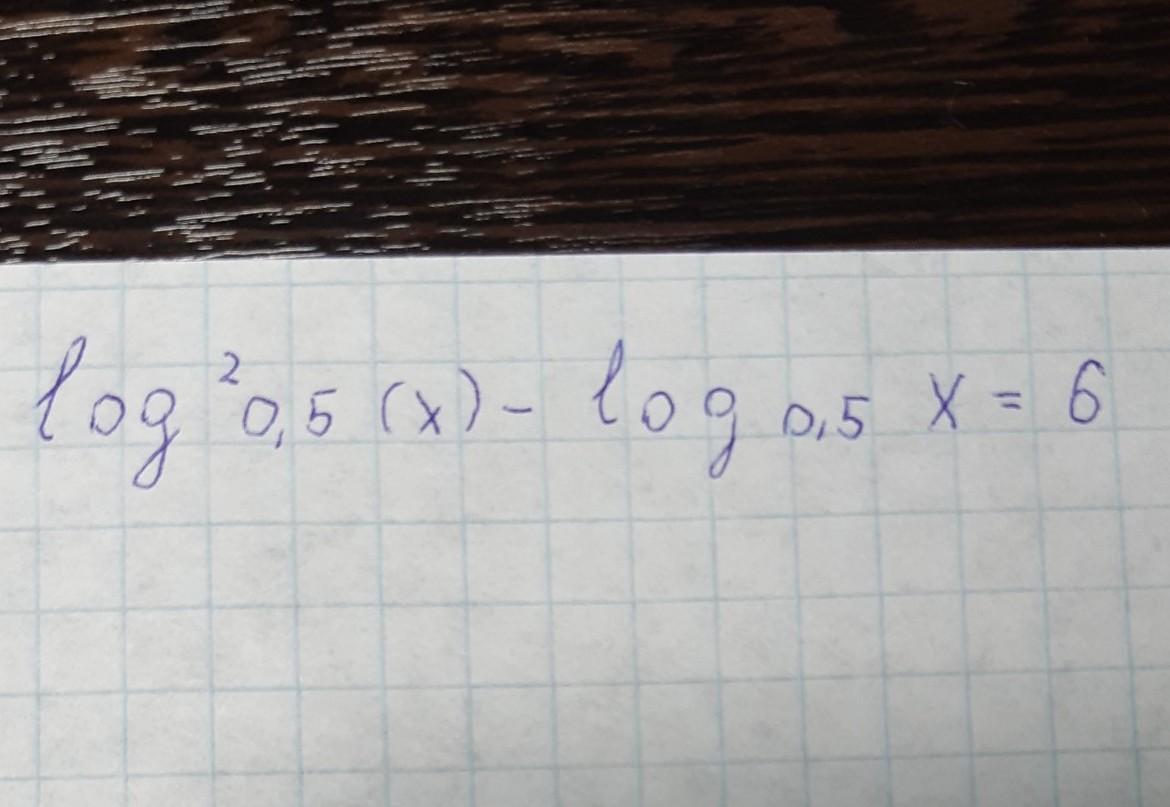 log²0,5 (x) - log 0,5 x = 6